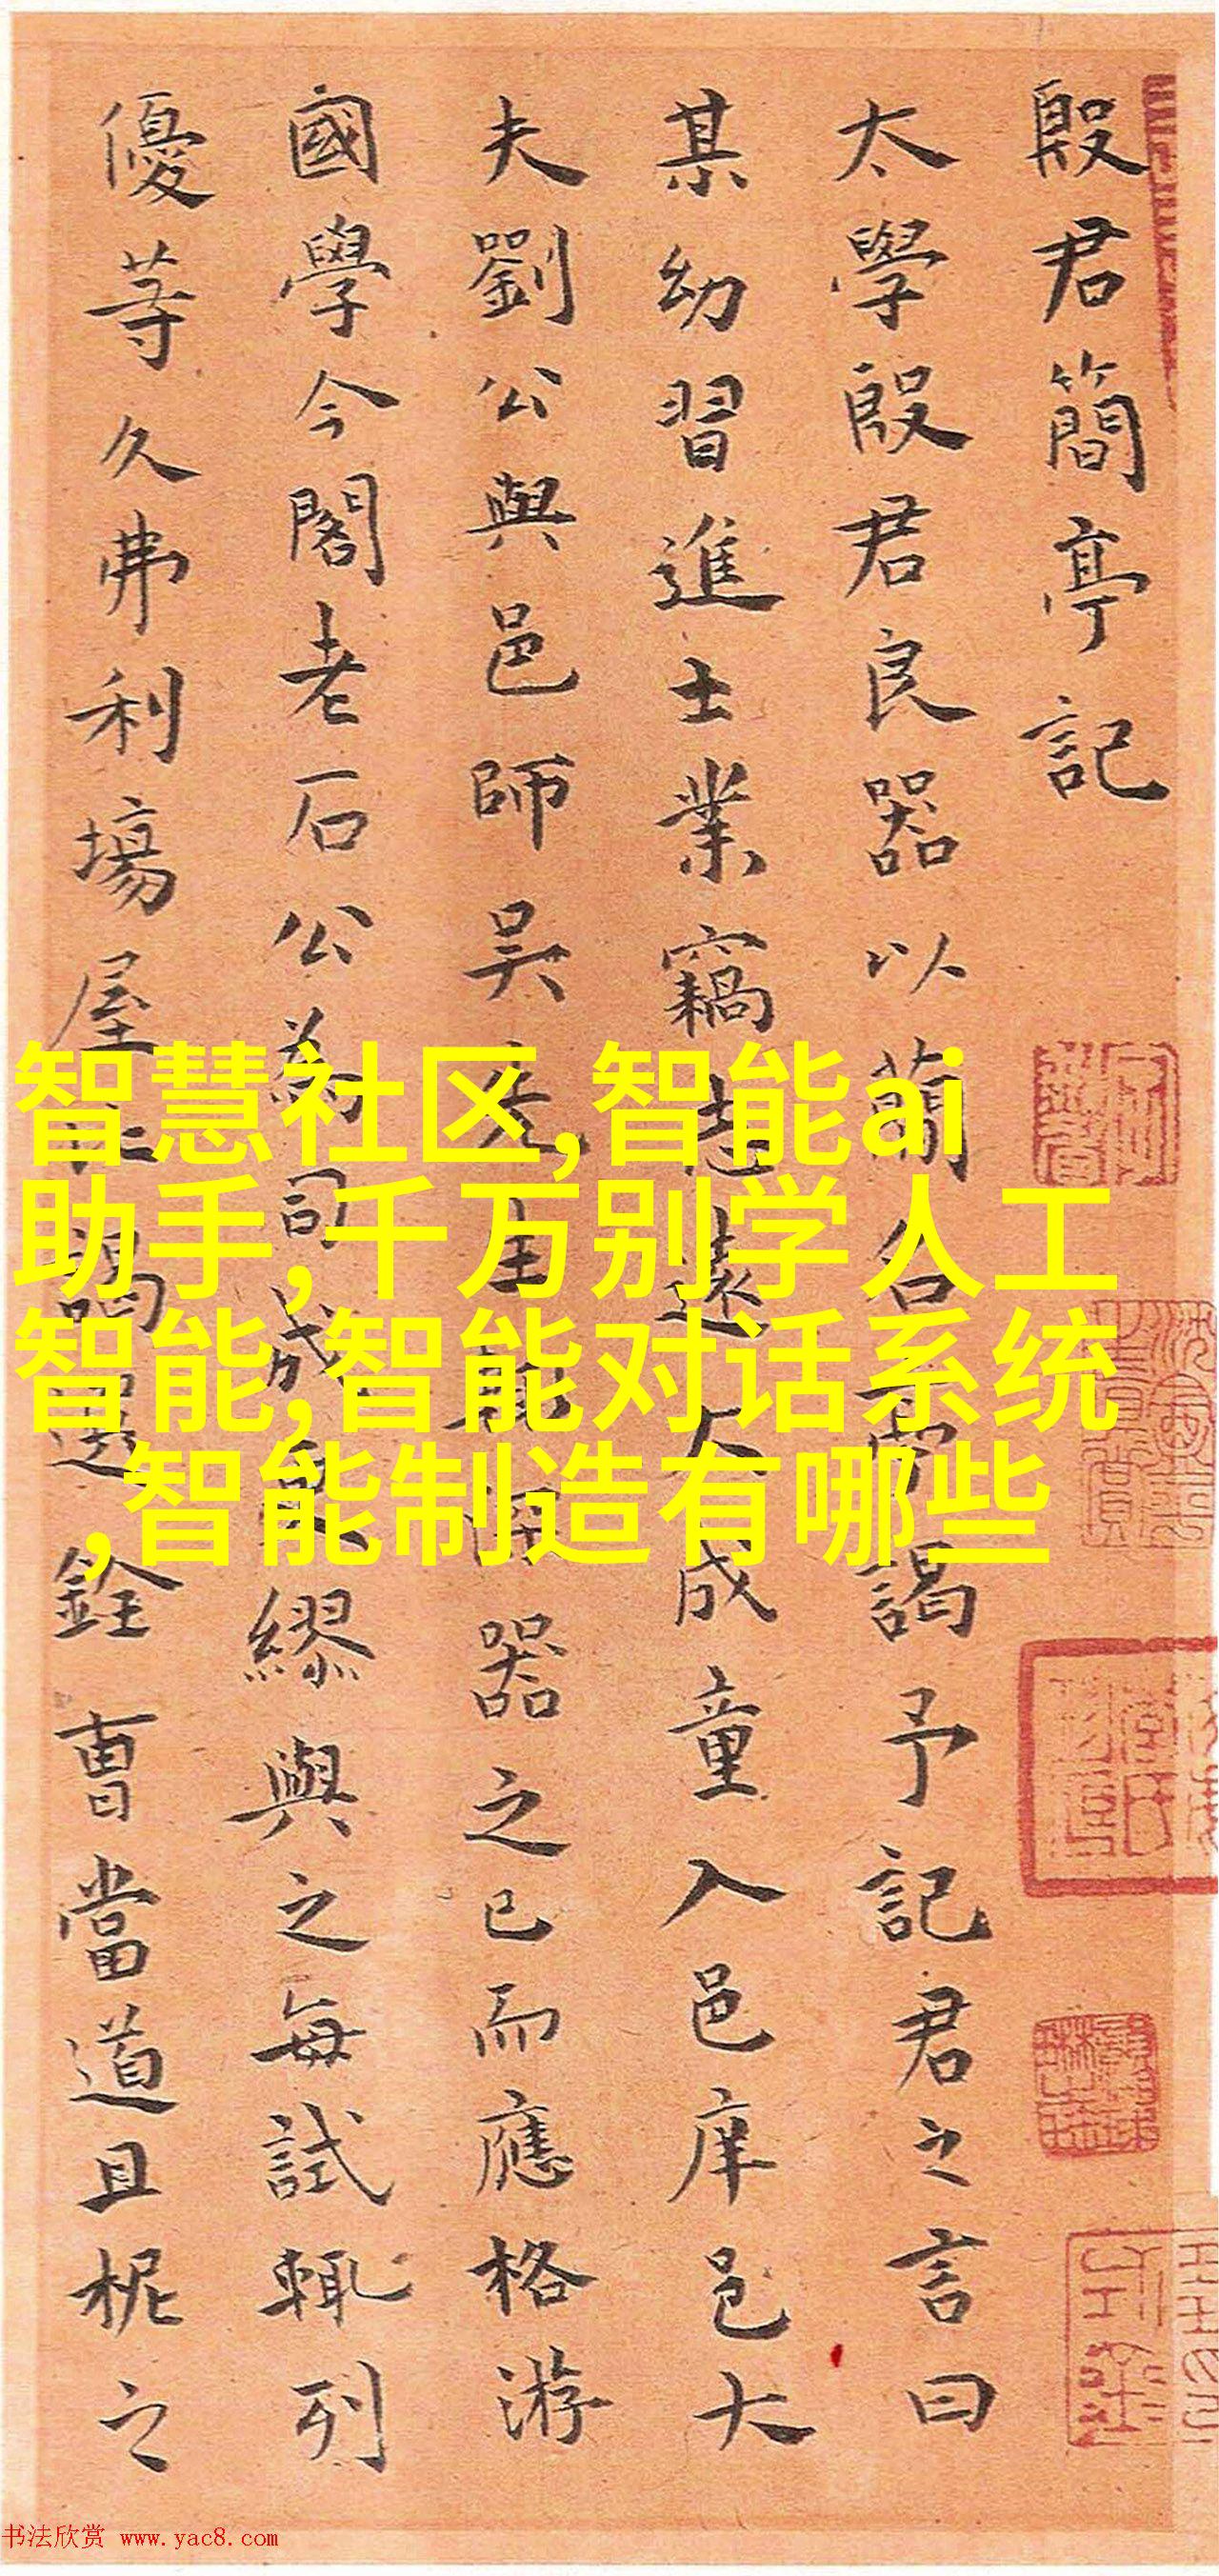 殷君簡亭記
太學殷君良器以簡名亭謁予記君之言曰
某幼習進士業竊志遠大成童入邑庠邑大
夫劉公與邑師吳先生器之已而應格游
國學今閣老石公為司成繆與之每試輒列
優等久弗利場屋謁選銓曹當道且柅之
智慧社区,智能ai
助手,千万别学人工
智能,智能对话系统
,智能制造有哪些
书法欣赏 www.yac8.com